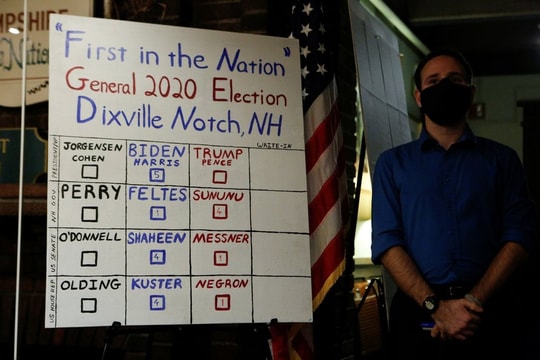 MPSHIRE
"First in the Nation"
General 2020 Election
Dixville Notch, NH
WRITE-IN
PRESIDENT/VP
JORGENSEN COHEN
BIDEN HARRIS 5
TRUMP PENCE
NH GOV
PERRY
FELTES 1
SUNUNU 4
US SENATE
O'DONNELL
SHAHEEN 4
MESSNER 1
US HOUSE REP
OLDING
KUSTER 4
NEGRON 1